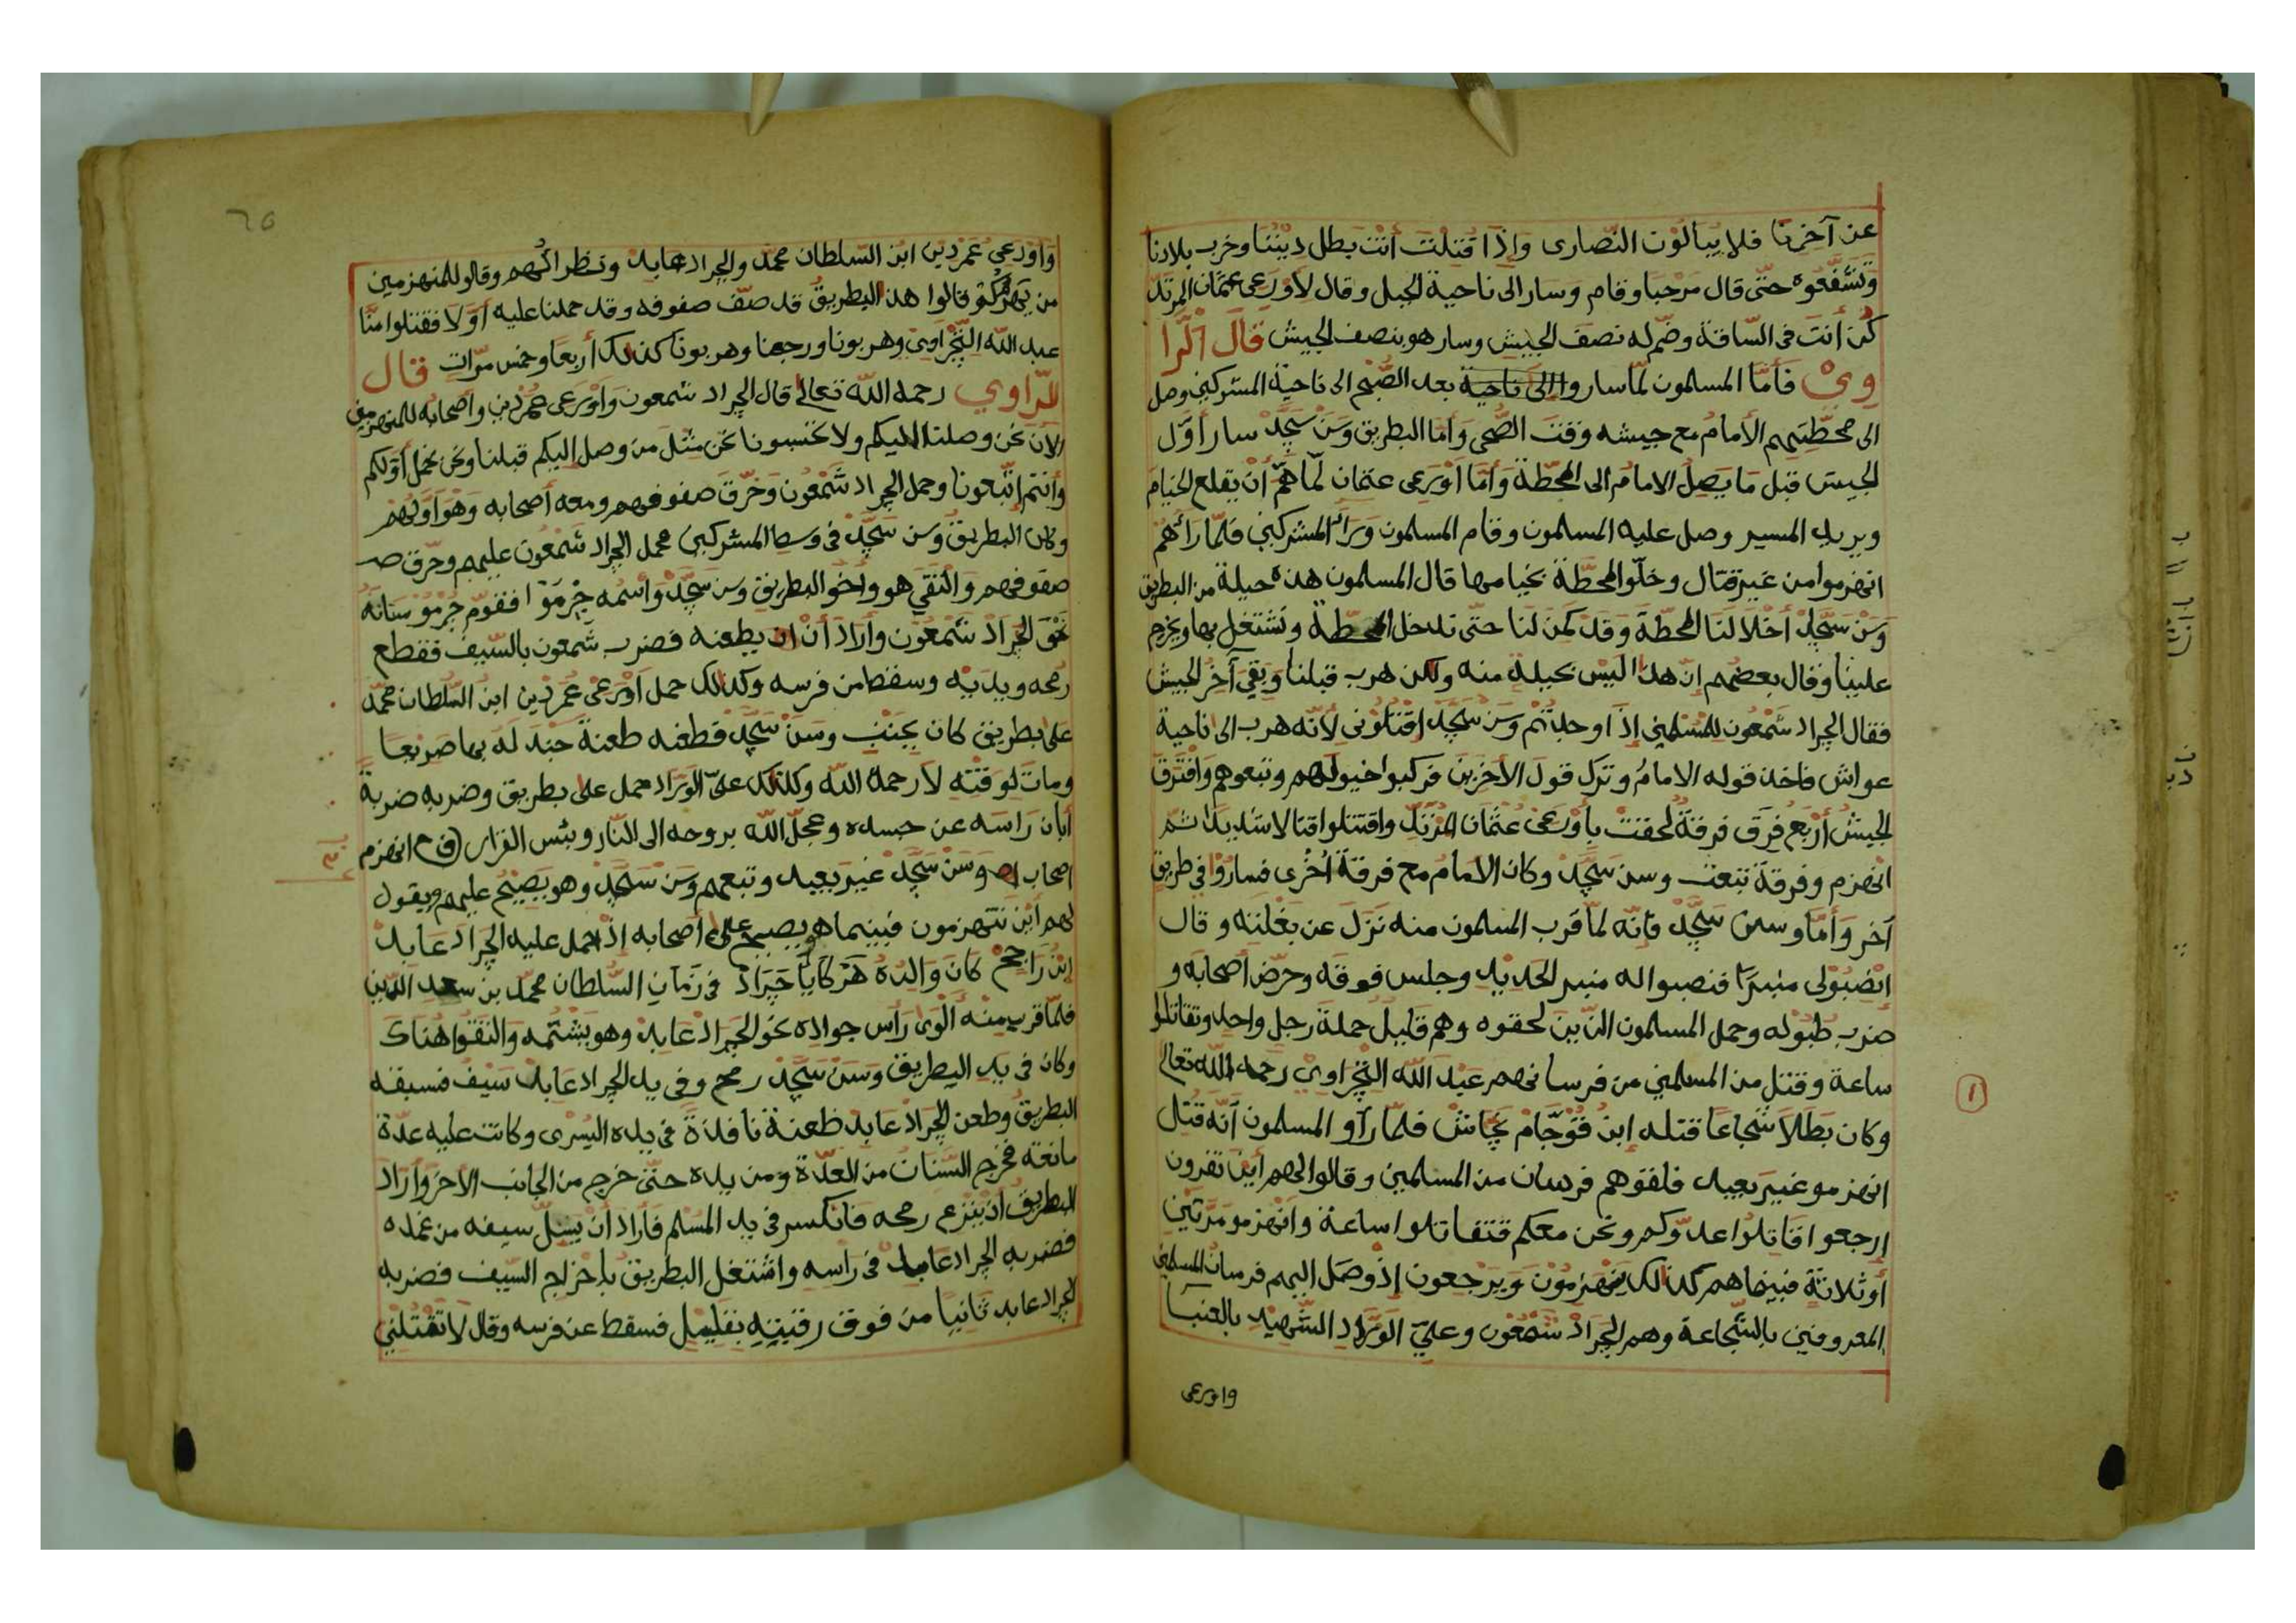 عن آخرنا فلا يبالون النصارى وإذا قتلت أنت بطل ديننا وخرب بلادنا
وتشفعوه حتى قال مرحبا وقام وسار الى ناحية الجبل وقال لأورعى عثمان المرتد
كن أنت فى الساقة وضم له نصف الجيش وسار هو بنصف الجيش قال الرا
وي فأما المسلمون لما ساروا الى ناحية بعد الصبح الى ناحية المشركين وصل
الى محطتهم الأمام مع جيشه وقت الضحى وأما البطريق وسن سجد سار أول
الجيش قبل ما يصل الامام الى المحطة وأما أورعى عثمان لما هم أن يقلع الخيام
ويريد المسير وصل عليه المسلمون وقام المسلمون وراء المشركين فلما رأهم
انهزموا من غير قتال وخلو المحطة بخيامها قال المسلمون هذه حيلة من البطريق
وسن سجد أخلا لنا المحطة وقد كمن لنا حتى ندخل المحطة ونشتغل بها ويخرج
علينا وقال بعضهم إن هذا ليس بحيلة منه ولكن هرب قبلنا وبقي آخر الجيش
فقال الجراد شمعون للمسلمين إذا وجدتم وسن سجد اقتلونى لأنه هرب الى ناحية
عواش فاخذ قوله الامام وترك قول الأخرين فركبوا خيولهم وتبعوهم وافترق
الجيش أربع فرق فرقة لحقت بأورعى عثمان المرتد واقتتلوا قتالا شديدا ثم
انهزم وفرقة تبعت وسن سجد وكان الامام مع فرقة أخرى فساروا في طريق
آخر وأما وسن سجد فانه لما قرب المسلمون منه نزل عن بغلته وقال
انصبو لى منبرا فنصبوا له منبر الحديد وجلس فوقه وحرض أصحابه و
ضرب طبوله وحمل المسلمون الذين لحقوه وهم قليل حملة رجل واحد وتقاتلوا
ساعة وقتل من المسلمين من فرسانهم عبد الله النجراوي رحمه الله تعالى
١
وكان بطلا شجاعا قتله إبن قوجام نجاش فلما رآو المسلمون أنه قتل
انهزمو غير بعيد فلقوهم فرسان من المسلمين وقالوا لهم أين تفرون
إرجعوا قاتلوا عدوكم ونحن معكم فتقاتلوا ساعة وانهزمو مرتين
أو ثلاثة فبينما هم كذلك ينهزمون ويرجعون إذ وصل اليهم فرسان المسلمين
المعروفين بالشجاعة وهم الجراد شمعون وعلي الوراد الشهيد بالعنبا
واورعى
٦٥
وأورعي عمردين ابن السلطان محمد والجراد عابد ونظر اليهم وقالو للمنهزمين
من يهزمكم قالوا هذا البطريق قد صف صفوفه وقد حملنا عليه أولا فقتلوا منا
عبد الله النجراوي وهربونا ورجعنا وهربونا كذلك أربعا وخمس مرات قال
الراوي رحمه الله تعالى قال الجراد شمعون وأورعى عمردين وأصحابه للمنهزمين
الان نحن وصلنا اليكم ولا تحسبونا نحن مثل من وصل إليكم قبلنا ونحن نحمل أولكم
وأنتم إتبعونا وحمل الجراد شمعون وخرق صفوفهم ومعه أصحابه وهو أولهم
وكان البطريق وسن سجد فى وسط المشركين فحمل الجراد شمعون عليهم وخرق صـ
صفوفهم والتقي هو وأخو البطريق وسن سجد واسمه جرموا فقوم جرمو سنانه
نحو الجراد شمعون وأراد أن يطعنه فضرب شمعون بالسيف فقطع
رمحه ويديه وسقط من فرسه وكذلك حمل أورعى عمردين ابن السلطان محمد
على بطريق كان بجنب وسن سجد فطعنه طعنة جند له بها صريعا
ومات لوقته لا رحمه الله وكذلك على الوراد حمل على بطريق وضربه ضربة
أبان راسه عن جسده وعجل الله بروحه الى النار وبئس القرار انهزم
اصحاب وسن سجد غير بعيد وتبعهم وسن سجد وهو يصيح عليهم ويقول
لهم أين تنهزمون فبينما هو يصيح على أصحابه إذ حمل عليه الجراد عابد
ابن راجح كان والده هركايا جراد في زمان السلطان محمد بن سعد الدين
فلما قرب منه ألوى رأس جواده نحو الجراد عابد وهو يشتمه والتقوا هناك
وكان فى يد البطريق وسن سجد رمح وفى يد الجراد عابد سيف فسبقه
البطريق وطعن الجراد عابد طعنة نافذة في يده اليسرى وكانت عليه عدة
مانعة فخرج السنان من العدة ومن يده حتى خرج من الجانب الأخر وأراد
البطريق أن ينزع رمحه فانكسر فى يد المسلم فأراد أن يسل سيفه من غمده
فضربه الجراد عابد فى راسه واشتغل البطريق بإخراج السيف فضربه
الجراد عابد ثانيا من فوق رقبته بقليل فسقط عن فرسه وقال لا تقتلني